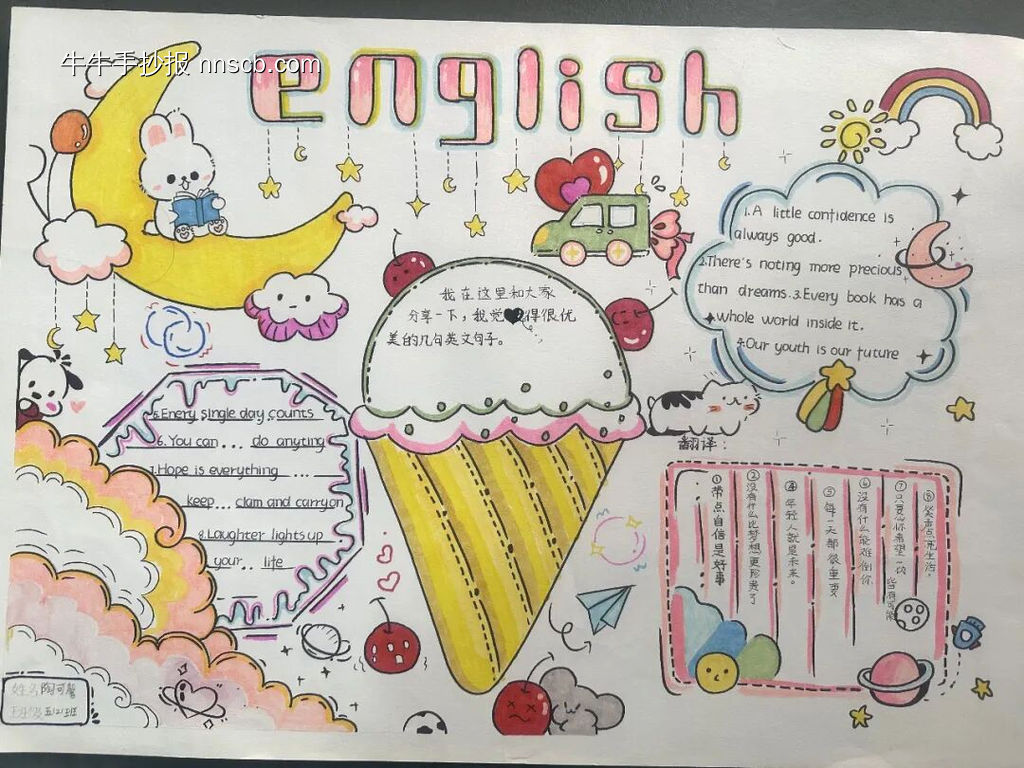 牛牛手抄报 nnscb.com
english
1.A little confidence is
always good.
2.There's noting more precious
than dreams.3.Every book has a
whole world inside it.
4.Our youth is our future
我在这里和大家
分享一下,我觉得很优
美的几句英文句子。
5.Enery single day counts
6.You can... do anyting
7.Hope is everything ....
keep... clam and carryon
8.Laughter lights up
your.. life
翻译:
①带点自信是好事
②没有什么比梦想更珍贵了
④年轻人就是未来。
⑤每一天都很重要
⑥没有什么能难倒你
⑦只要心怀希望一切
皆有可能
⑧笑声点亮生活,
姓名
班级 五(2)班